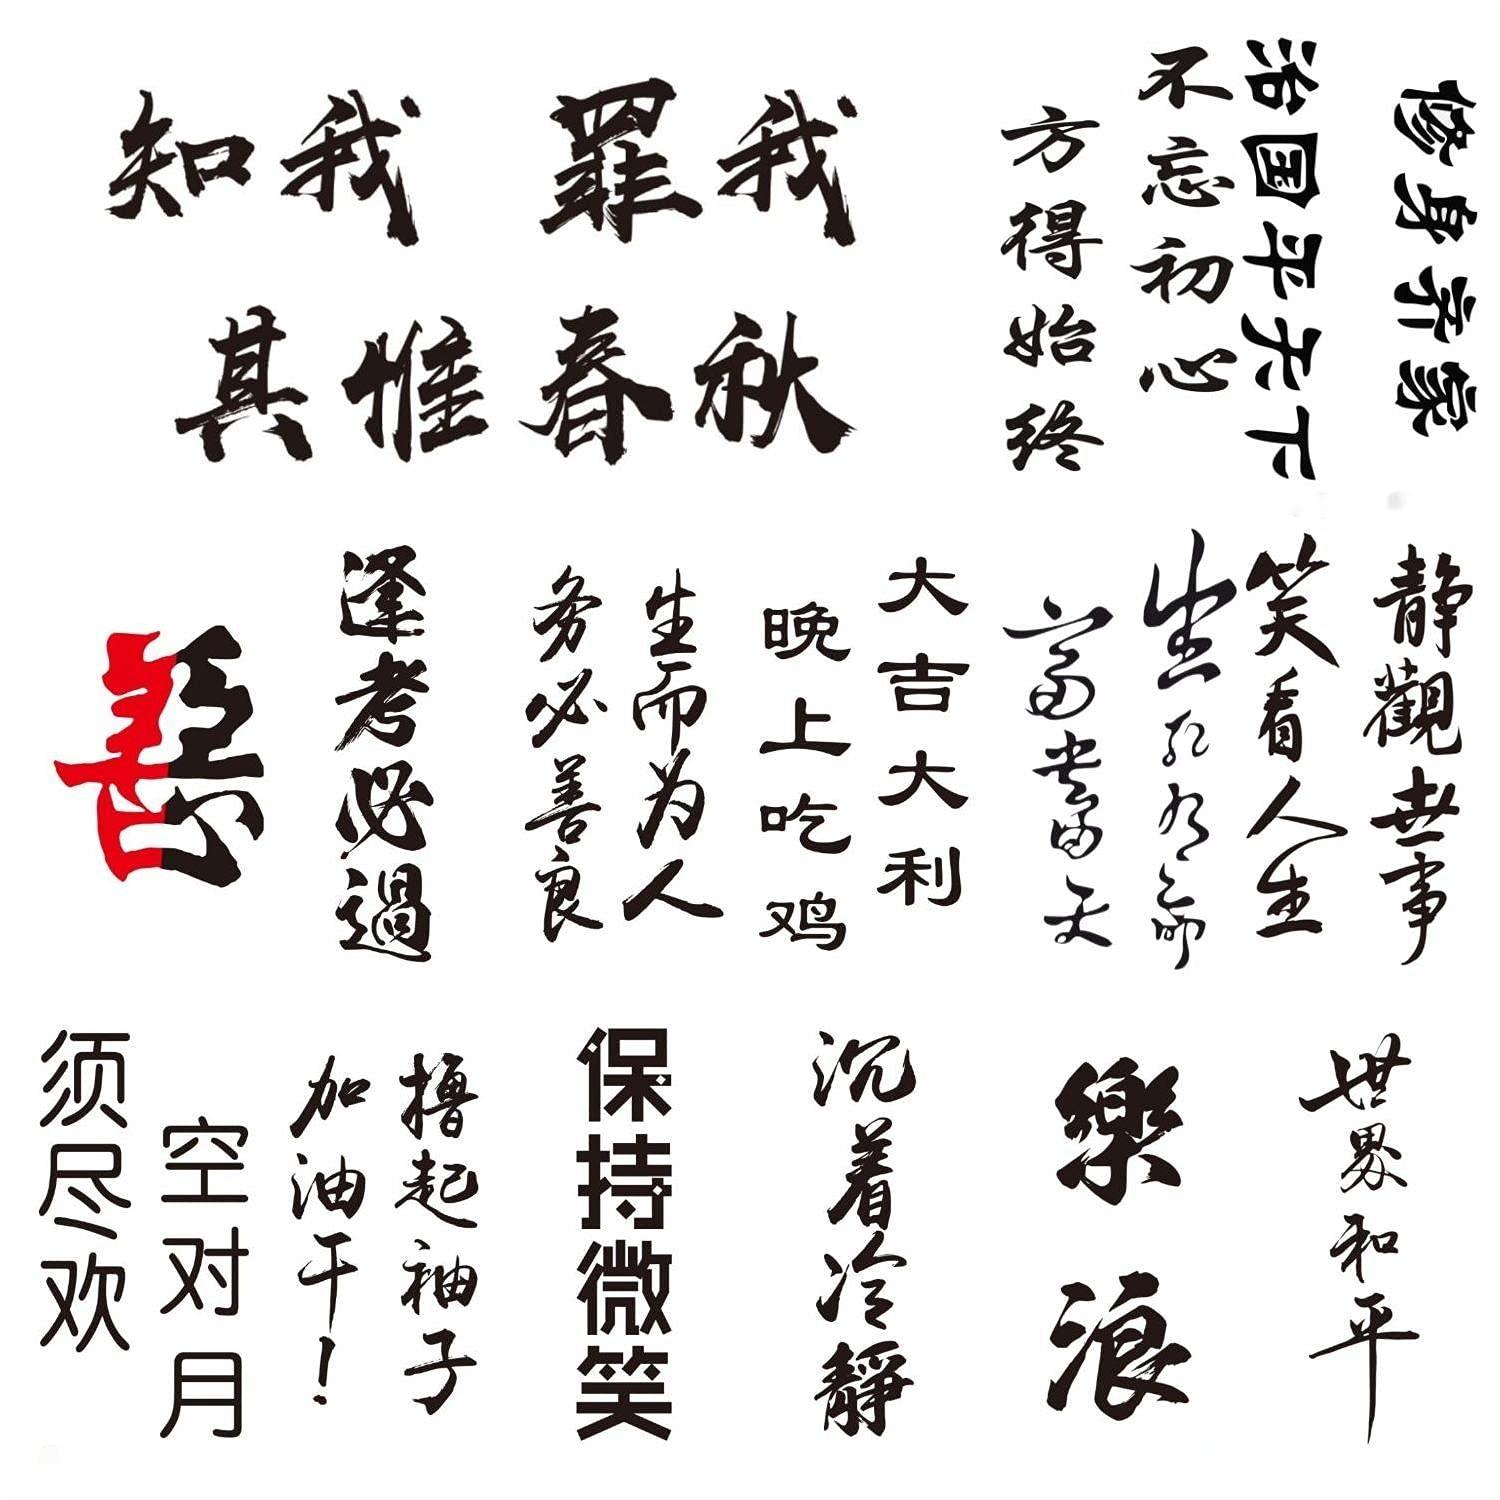 知我 罪我
其惟春秋
不忘初心
方得始终
修身齐家
治国平天下
逢考必過
生而为人
务必善良
大吉大利
晚上吃鸡
生死有命
富贵在天
静觀世事
笑看人生
须尽欢
空对月
撸起袖子
加油干！
保持微笑
沉着冷靜
樂浪
世界和平